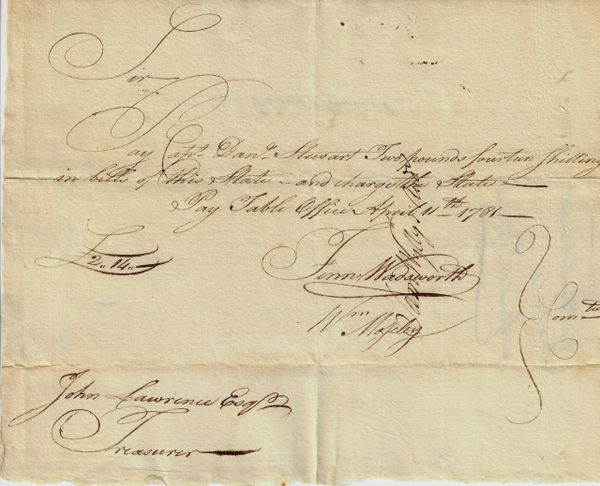 Sir
Pay Capt. Danl. Stewart Two pounds fourteen Shilling
in bills of this State – and charge the State –
Pay Table Office April 11th 1781
£2..14..
Fenn Wadsworth
Wm Moseley
Comtee
John Lawrence Esqr
Treasurer